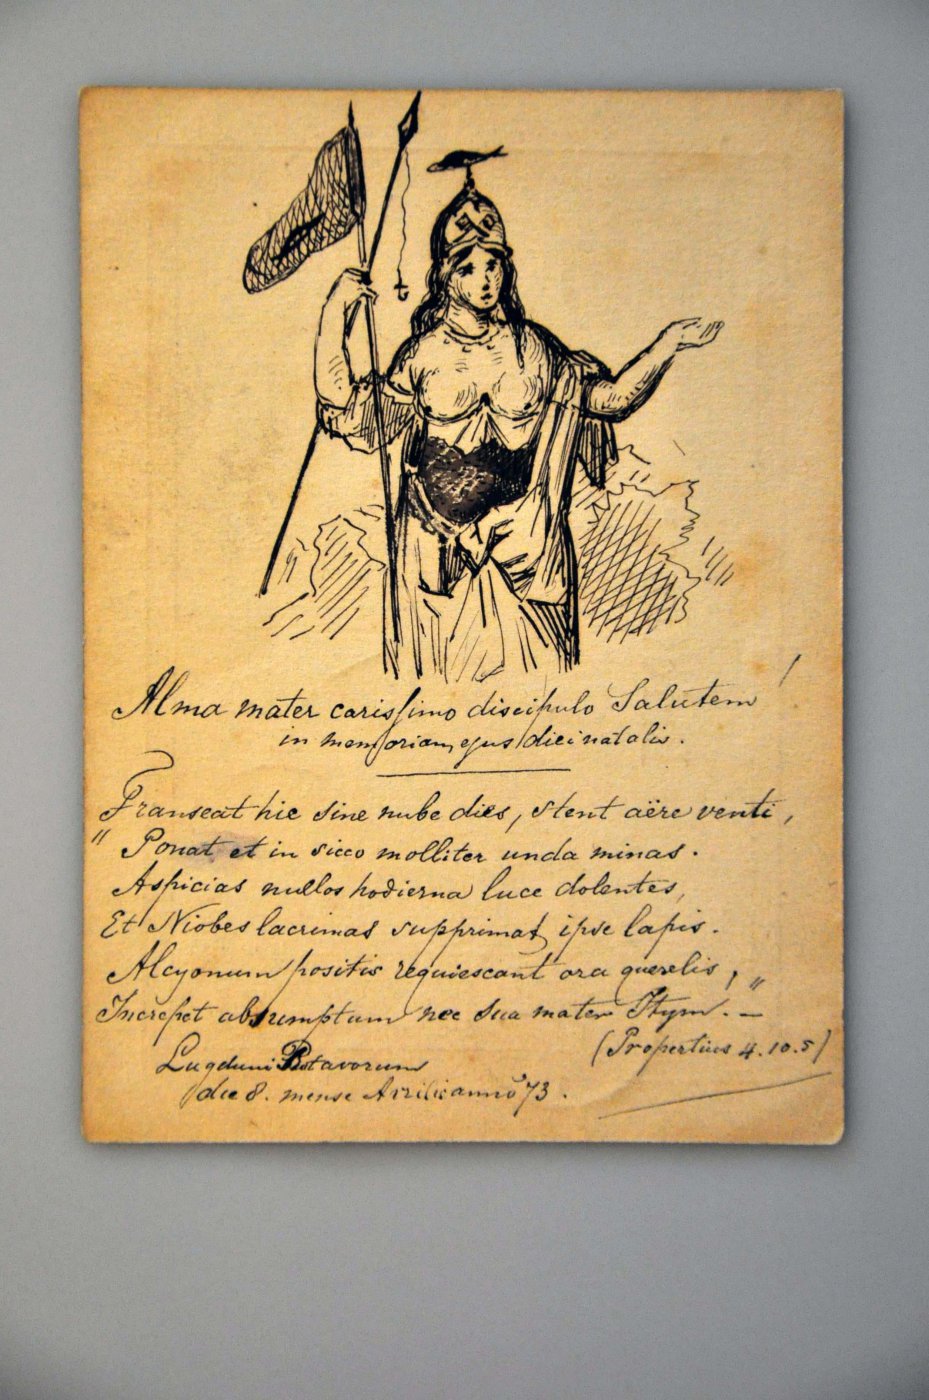 Alma mater carissimo discipulo Salutem!
in memoriam ejus diei natalis.
Transeat hic sine nube dies, stent aëre venti,
" Ponat et in sicco molliter unda minas.
Aspicias nullos hodierna luce dolentes,
Et Niobes lacrimas supprimat ipse lapis.
Alcyonum positis requiescant ora querelis, "
Increpet absumptum nec sua mater Itym. —
(Propertius 4.10.5)
Lugduni Batavorum
die 8. mense Aprilis anno 73.